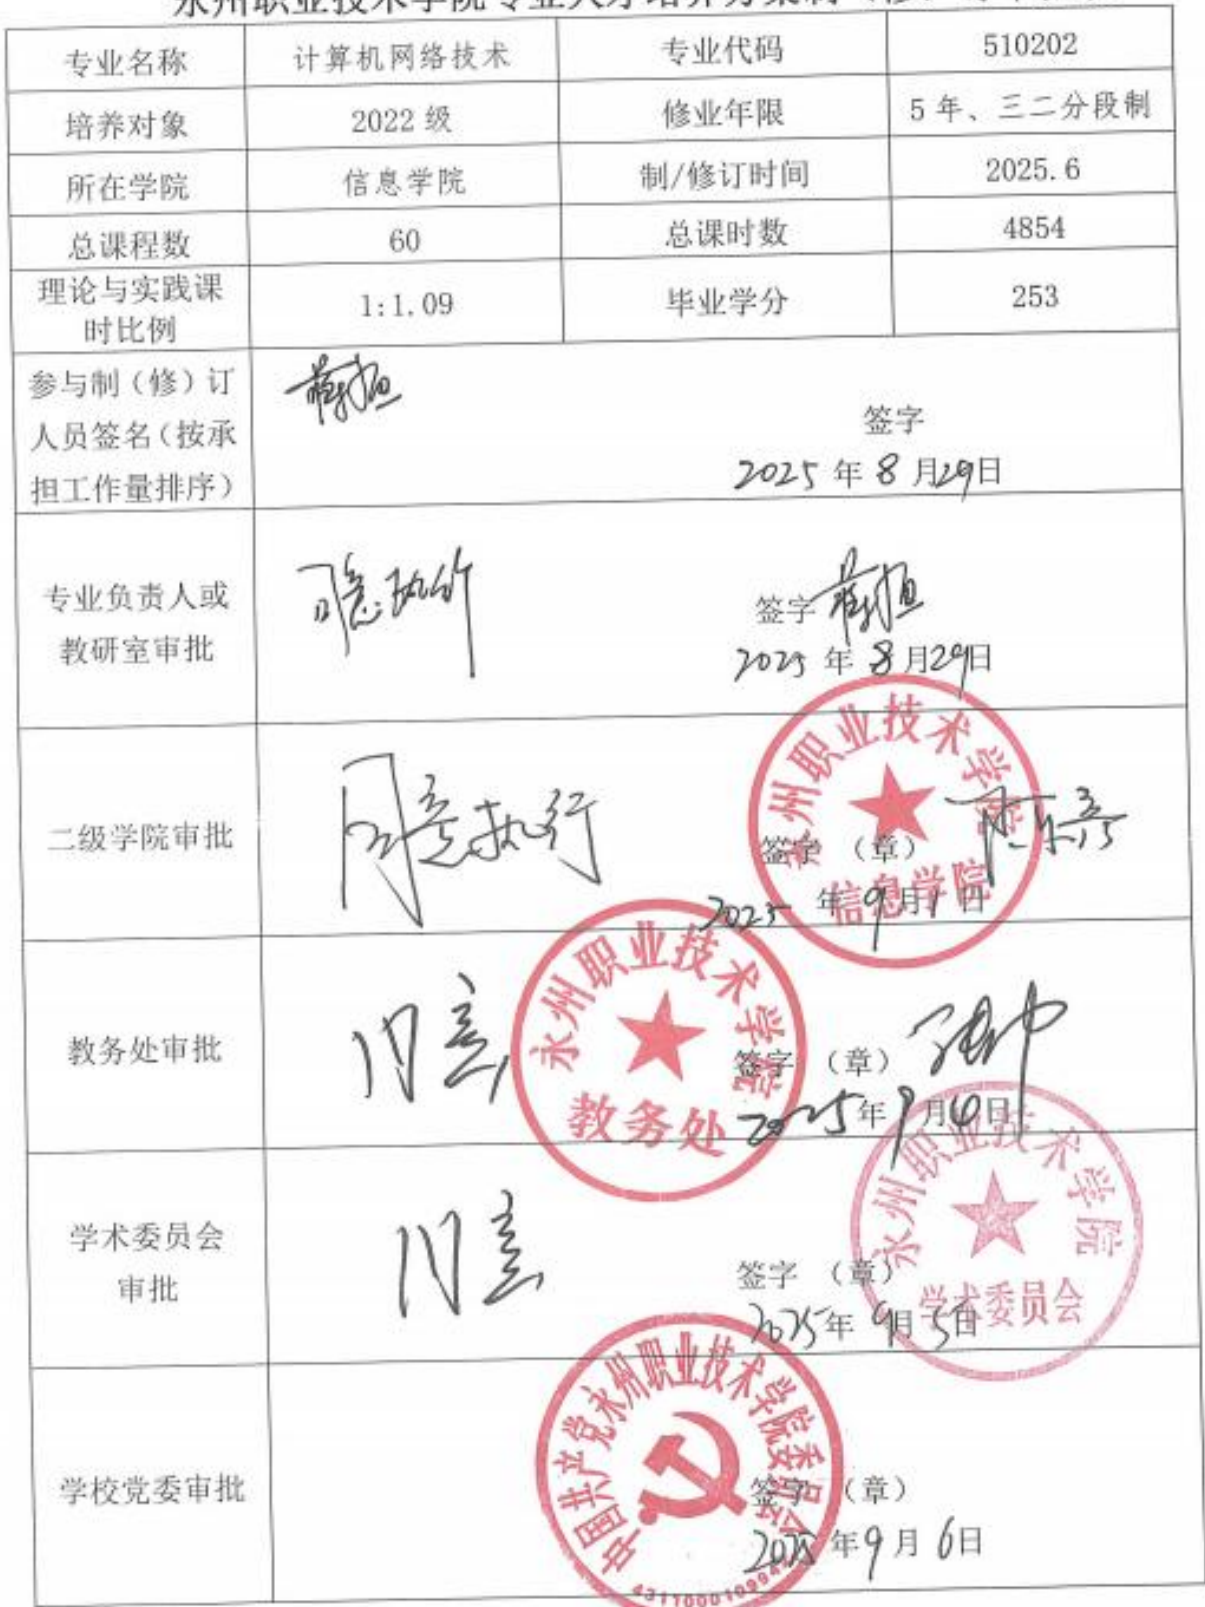 永州职业技术学院专业人才培养方案制（修）订审批表
专业名称 计算机网络技术 专业代码 510202
培养对象 2022 级 修业年限 5 年、三二分段制
所在学院 信息学院 制/修订时间 2025.6
总课程数 60 总课时数 4854
理论与实践课
时比例 1:1.09 毕业学分 253
参与制（修）订
人员签名（按承
担工作量排序）
签字
2025 年 8 月29日
专业负责人或
教研室审批
同意执行
签字
2025 年 8 月29日
二级学院审批
同意执行
签字 （章）
2025 年 9 月 1 日
永州职业技术学院
信息学院
教务处审批
同意
签字 （章）
2025年 9 月 4 日
永州职业技术学院
教务处
学术委员会
审批
同意
签字 （章）
2025年 9月 5日
永州职业技术学院
学术委员会
学校党委审批
签字 （章）
2025 年 9 月 6日
中国共产党永州职业技术学院委员会